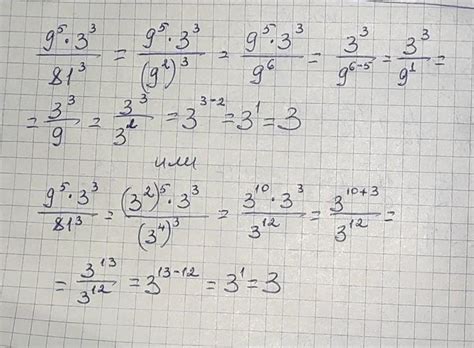 9⁵·3³/81³ = 9⁵·3³/(9²)³ = 9⁵·3³/9⁶ = 3³/9⁶⁻⁵ = 3³/9¹ =
= 3³/9 = 3³/3² = 3³⁻² = 3¹ = 3
или
9⁵·3³/81³ = (3²)⁵·3³/(3⁴)³ = 3¹⁰·3³/3¹² = 3¹⁰⁺³/3¹² =
= 3¹³/3¹² = 3¹³⁻¹² = 3¹ = 3